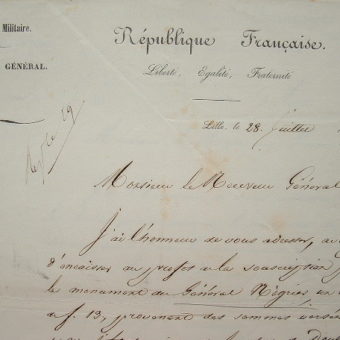 Militaire.
GÉNÉRAL.
République Française.
Liberté, Egalité, Fraternité
Lille, le 28 Juillet
Monsieur le Receveur Général
J'ai l'honneur de vous adresser,
d'encaisser au profit de la souscription
le monument du Général Négrier en
a f. 13, provenant des sommes versées